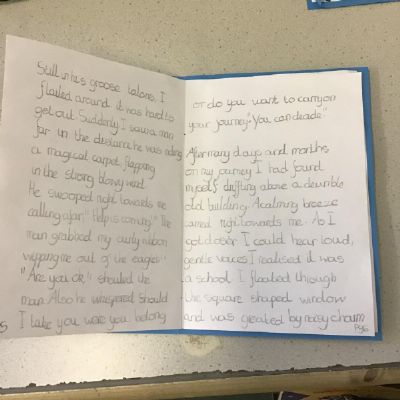 Still in his groose talons, I
flailed around it was hard to
get out. Suddenly I saw a man
far in the distance he was riding
a magical carpet flapping
in the strong blowy wind.
He swooped right towards me
calling afar "Help is coming" The
man grabbed my curly ribbon
wipping me out of the eagles.
"Are you ok!" shouted the
man. Also he whispered Should
I take you were you belong
or do you want to carry on
your journey." You can decide"
After many days and months
on my journey I had found
myself drifting above a
old building. A calming breeze
carried right towards me. As I
got closer I could hear loud,
gentle voices I realised it was
a school. I floated through
the square shaped window
and was greated by noisy
Pg6